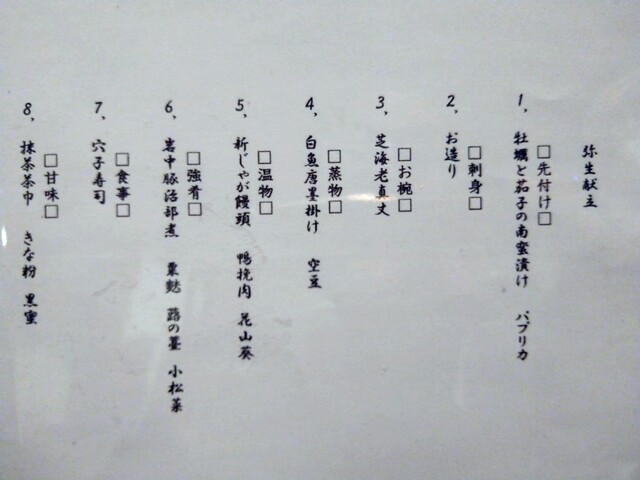 弥生献立
□先付け□
1、牡蠣と茄子の南蛮漬け　パプリカ
□刺身□
2、お造り
□お椀□
3、芝海老真丈
□蒸物□
4、白魚唐墨掛け　空豆
□温物□
5、新じゃが饅頭　鴨挽肉　花山葵
□強肴□
6、岩中豚治部煮　粟麩　蕗の薹　小松菜
□食事□
7、穴子寿司
□甘味□
8、抹茶茶巾　きな粉　黒蜜